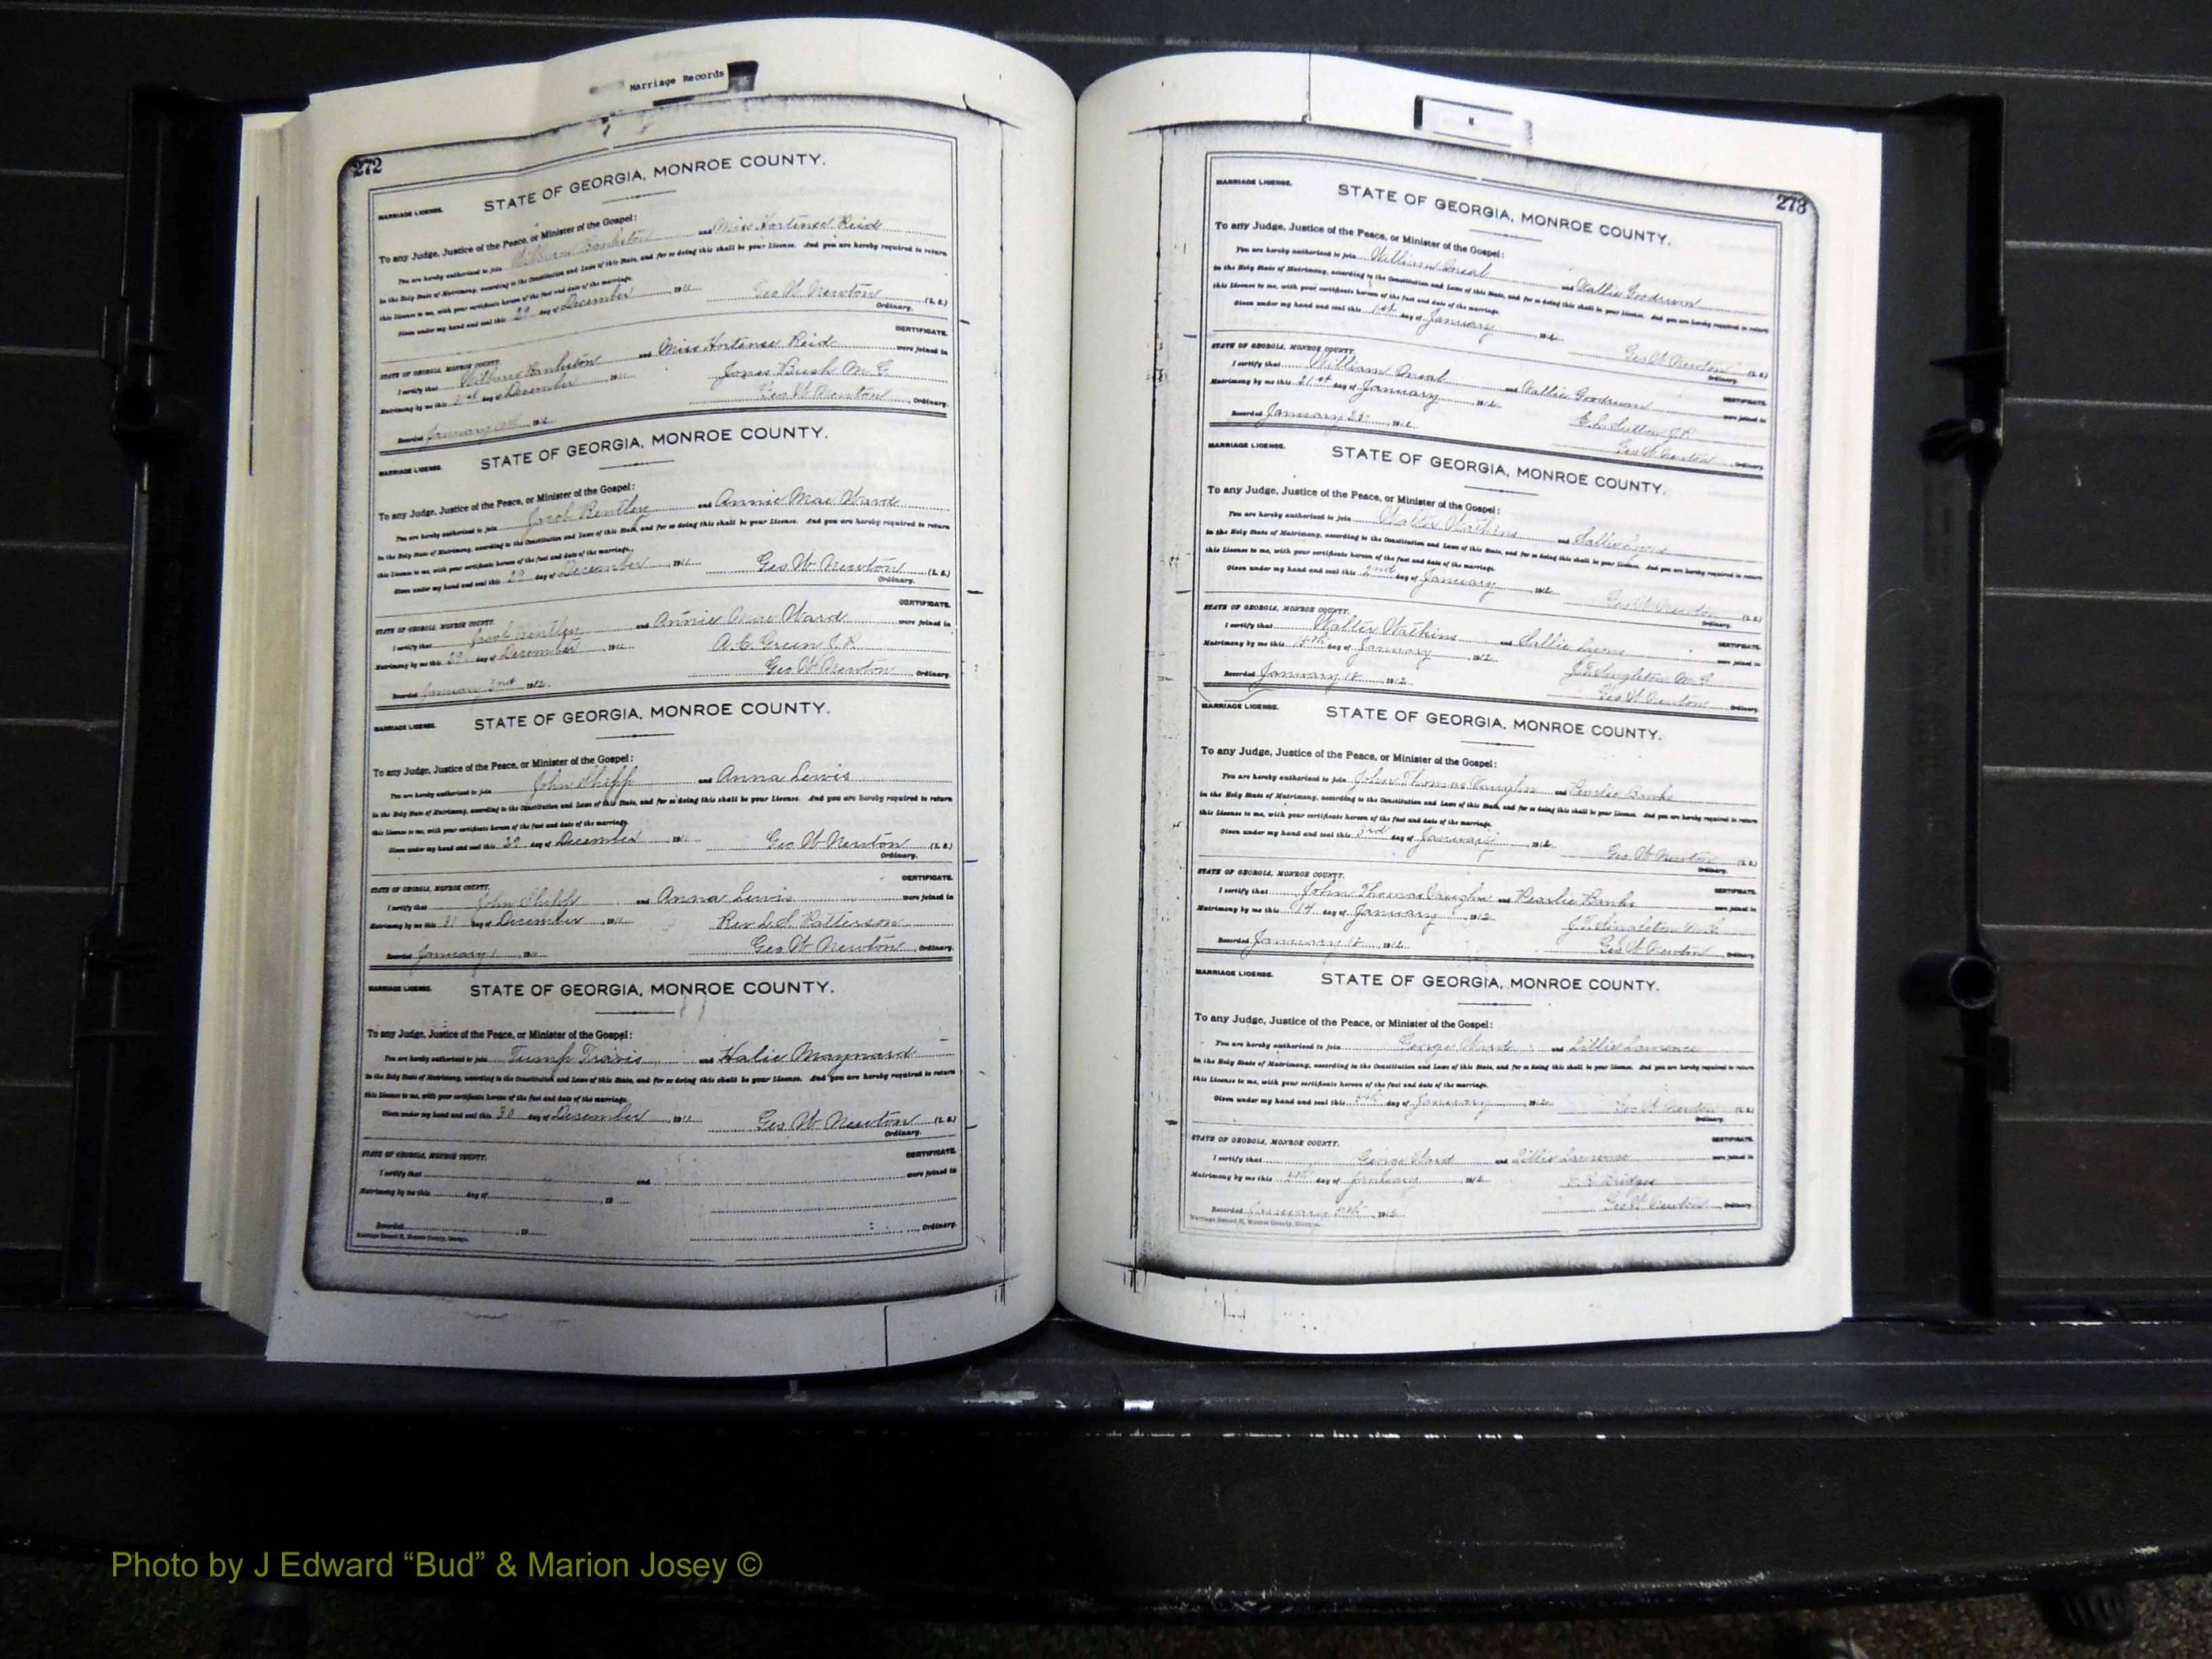 Marriage Records
272
MARRIAGE LICENSE. STATE OF GEORGIA, MONROE COUNTY.
To any Judge, Justice of the Peace, or Minister of the Gospel:
You are hereby authorized to join Wilburn Bankston and Miss Hortense Reid
in the Holy State of Matrimony, according to the Constitution and Laws of this State, and for so doing this shall be your License. And you are hereby required to return
this License to me, with your certificate hereon of the fact and date of the marriage.
Given under my hand and seal this 29 day of December, 1911 Geo W Newton (L. S.)
Ordinary.
STATE OF GEORGIA, MONROE COUNTY. CERTIFICATE.
I certify that Wilburn Bankston and Miss Hortense Reid were joined in
Matrimony by me this day of December 1911 Jones Bush M. G.
Recorded January 1912 Geo W Newton, Ordinary.
MARRIAGE LICENSE. STATE OF GEORGIA, MONROE COUNTY.
To any Judge, Justice of the Peace, or Minister of the Gospel:
You are hereby authorized to join Jacob Bentley and Annie Mae Ward
in the Holy State of Matrimony, according to the Constitution and Laws of this State, and for so doing this shall be your License. And you are hereby required to return
this License to me, with your certificate hereon of the fact and date of the marriage.
Given under my hand and seal this 29 day of December, 1911 Geo W Newton (L. S.)
Ordinary.
STATE OF GEORGIA, MONROE COUNTY. CERTIFICATE.
I certify that Jacob Bentley and Annie Mae Ward were joined in
Matrimony by me this 29 day of December, 1911 A. C. Green J. P.
Recorded January 2nd 1912 Geo W Newton, Ordinary.
MARRIAGE LICENSE. STATE OF GEORGIA, MONROE COUNTY.
To any Judge, Justice of the Peace, or Minister of the Gospel:
You are hereby authorized to join John Shipp and Anna Lewis
in the Holy State of Matrimony, according to the Constitution and Laws of this State, and for so doing this shall be your License. And you are hereby required to return
this License to me, with your certificate hereon of the fact and date of the marriage.
Given under my hand and seal this 29 day of December, 1911 Geo W Newton (L. S.)
Ordinary.
STATE OF GEORGIA, MONROE COUNTY. CERTIFICATE.
I certify that John Shipp and Anna Lewis were joined in
Matrimony by me this 31 day of December, 1911 Rev L. S. Patterson
Recorded January 1, 19 Geo W Newton, Ordinary.
MARRIAGE LICENSE. STATE OF GEORGIA, MONROE COUNTY.
To any Judge, Justice of the Peace, or Minister of the Gospel:
You are hereby authorized to join Tump Travis and Halie Maynard
in the Holy State of Matrimony, according to the Constitution and Laws of this State, and for so doing this shall be your License. And you are hereby required to return
this License to me, with your certificate hereon of the fact and date of the marriage.
Given under my hand and seal this 30 day of December, 1911 Geo W Newton (L. S.)
Ordinary.
STATE OF GEORGIA, MONROE COUNTY. CERTIFICATE.
I certify that and were joined in
Matrimony by me this day of , 19
Recorded , 19 , Ordinary.
Marriage Record H, Monroe County, Georgia.
273
MARRIAGE LICENSE. STATE OF GEORGIA, MONROE COUNTY.
To any Judge, Justice of the Peace, or Minister of the Gospel:
You are hereby authorized to join William and Goodrum
in the Holy State of Matrimony, according to the Constitution and Laws of this State, and for so doing this shall be your License. And you are hereby required to return
this License to me, with your certificate hereon of the fact and date of the marriage.
Given under my hand and seal this 1st day of January, 1912 Geo W Newton (L. S.)
Ordinary.
STATE OF GEORGIA, MONROE COUNTY. CERTIFICATE.
I certify that William and Goodrum were joined in
Matrimony by me this 21st day of January, 1912 Sutton J. P.
Recorded January, 1912 Geo W Newton, Ordinary.
MARRIAGE LICENSE. STATE OF GEORGIA, MONROE COUNTY.
To any Judge, Justice of the Peace, or Minister of the Gospel:
You are hereby authorized to join Walter Watkins and Sallie Lyons
in the Holy State of Matrimony, according to the Constitution and Laws of this State, and for so doing this shall be your License. And you are hereby required to return
this License to me, with your certificate hereon of the fact and date of the marriage.
Given under my hand and seal this 2nd day of January, 1912 Geo W Newton (L. S.)
Ordinary.
STATE OF GEORGIA, MONROE COUNTY. CERTIFICATE.
I certify that Walter Watkins and Sallie Lyons were joined in
Matrimony by me this day of January, 1912 J. T. Singleton M. G.
Recorded January 18, 1912 Geo W Newton, Ordinary.
MARRIAGE LICENSE. STATE OF GEORGIA, MONROE COUNTY.
To any Judge, Justice of the Peace, or Minister of the Gospel:
You are hereby authorized to join John Thomas Vaughn and Pearlie Banks
in the Holy State of Matrimony, according to the Constitution and Laws of this State, and for so doing this shall be your License. And you are hereby required to return
this License to me, with your certificate hereon of the fact and date of the marriage.
Given under my hand and seal this 3rd day of January, 1912 Geo W Newton (L. S.)
Ordinary.
STATE OF GEORGIA, MONROE COUNTY. CERTIFICATE.
I certify that John Thomas Vaughn and Pearlie Banks were joined in
Matrimony by me this 14 day of January, 1912 J. T. Singleton M. G.
Recorded January 18, 1912 Geo W Newton, Ordinary.
MARRIAGE LICENSE. STATE OF GEORGIA, MONROE COUNTY.
To any Judge, Justice of the Peace, or Minister of the Gospel:
You are hereby authorized to join George Ward and Lillie Lawrence
in the Holy State of Matrimony, according to the Constitution and Laws of this State, and for so doing this shall be your License. And you are hereby required to return
this License to me, with your certificate hereon of the fact and date of the marriage.
Given under my hand and seal this day of January, 1912 Geo W Newton (L. S.)
Ordinary.
STATE OF GEORGIA, MONROE COUNTY. CERTIFICATE.
I certify that George Ward and Lillie Lawrence were joined in
Matrimony by me this day of January, 1912 Bridges
Recorded January, 1912 Geo W Newton, Ordinary.
Marriage Record H, Monroe County, Georgia.
Photo by J Edward “Bud” & Marion Josey ©